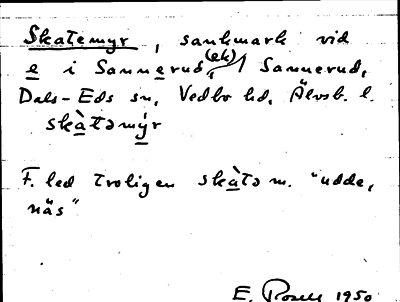 Skatemyr, sankmark vid
e i Sannerud (ek), Sannerud,
Dals-Eds sn, Vedbo hd, Älvsb. l.
skàtəmýr
F. led troligen skàtə m. "udde,
näs"
E. 1950